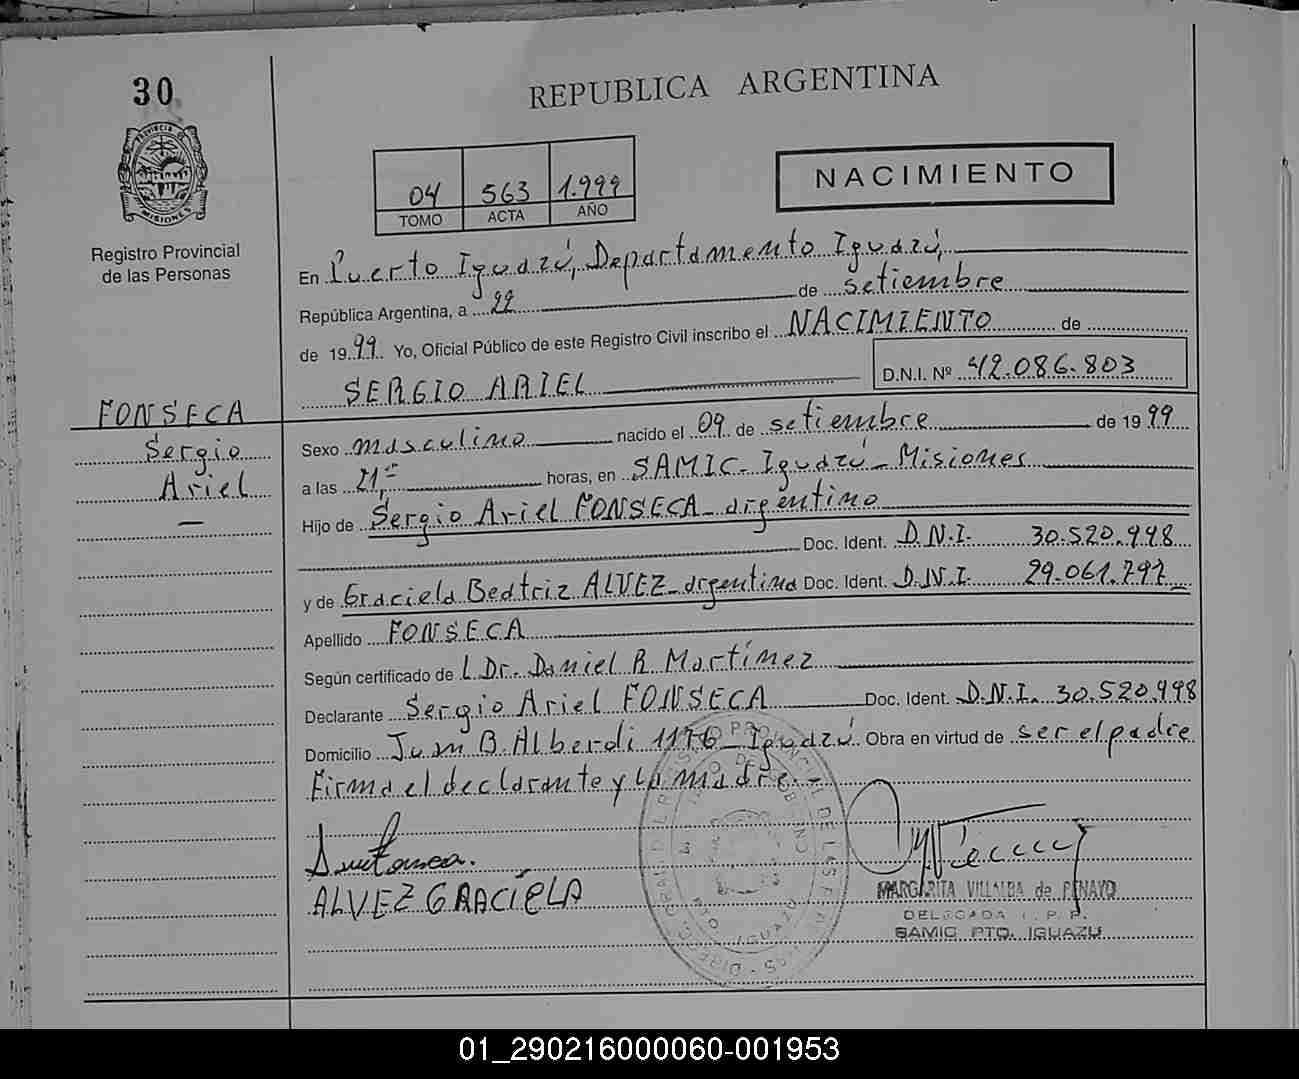 30
REPUBLICA ARGENTINA
PROVINCIA DE MISIONES
Registro Provincial
de las Personas
04 563 1.999
TOMO ACTA AÑO
NACIMIENTO
En Puerto Iguazú, Departamento Iguazú,
República Argentina, a 22 de setiembre
de 1999 Yo, Oficial Público de este Registro Civil inscribo el NACIMIENTO de
SERGIO ARIEL D.N.I. Nº 42.086.803
FONSECA
Sergio
Ariel
Sexo masculino nacido el 09 de setiembre de 1999
a las 21 horas, en SAMIC- Iguazú- Misiones
Hijo de Sergio Ariel FONSECA- argentino
Doc. Ident. D.N.I. 30.520.998
y de Graciela Beatriz ALVEZ- argentina Doc. Ident. D.N.I. 29.061.797
Apellido FONSECA
Según certificado de L Dr. Daniel R Martínez
Declarante Sergio Ariel FONSECA Doc. Ident. D.N.I. 30.520.998
Domicilio Juan B. Alberdi 1176- Iguazú Obra en virtud de ser el padre
Firma el declarante y la madre.-
ALVEZ GRACIELA
MARGARITA VILLALBA de PENAYO
DELEGADA
SAMIC PTO. IGUAZU
01_290216000060-001953